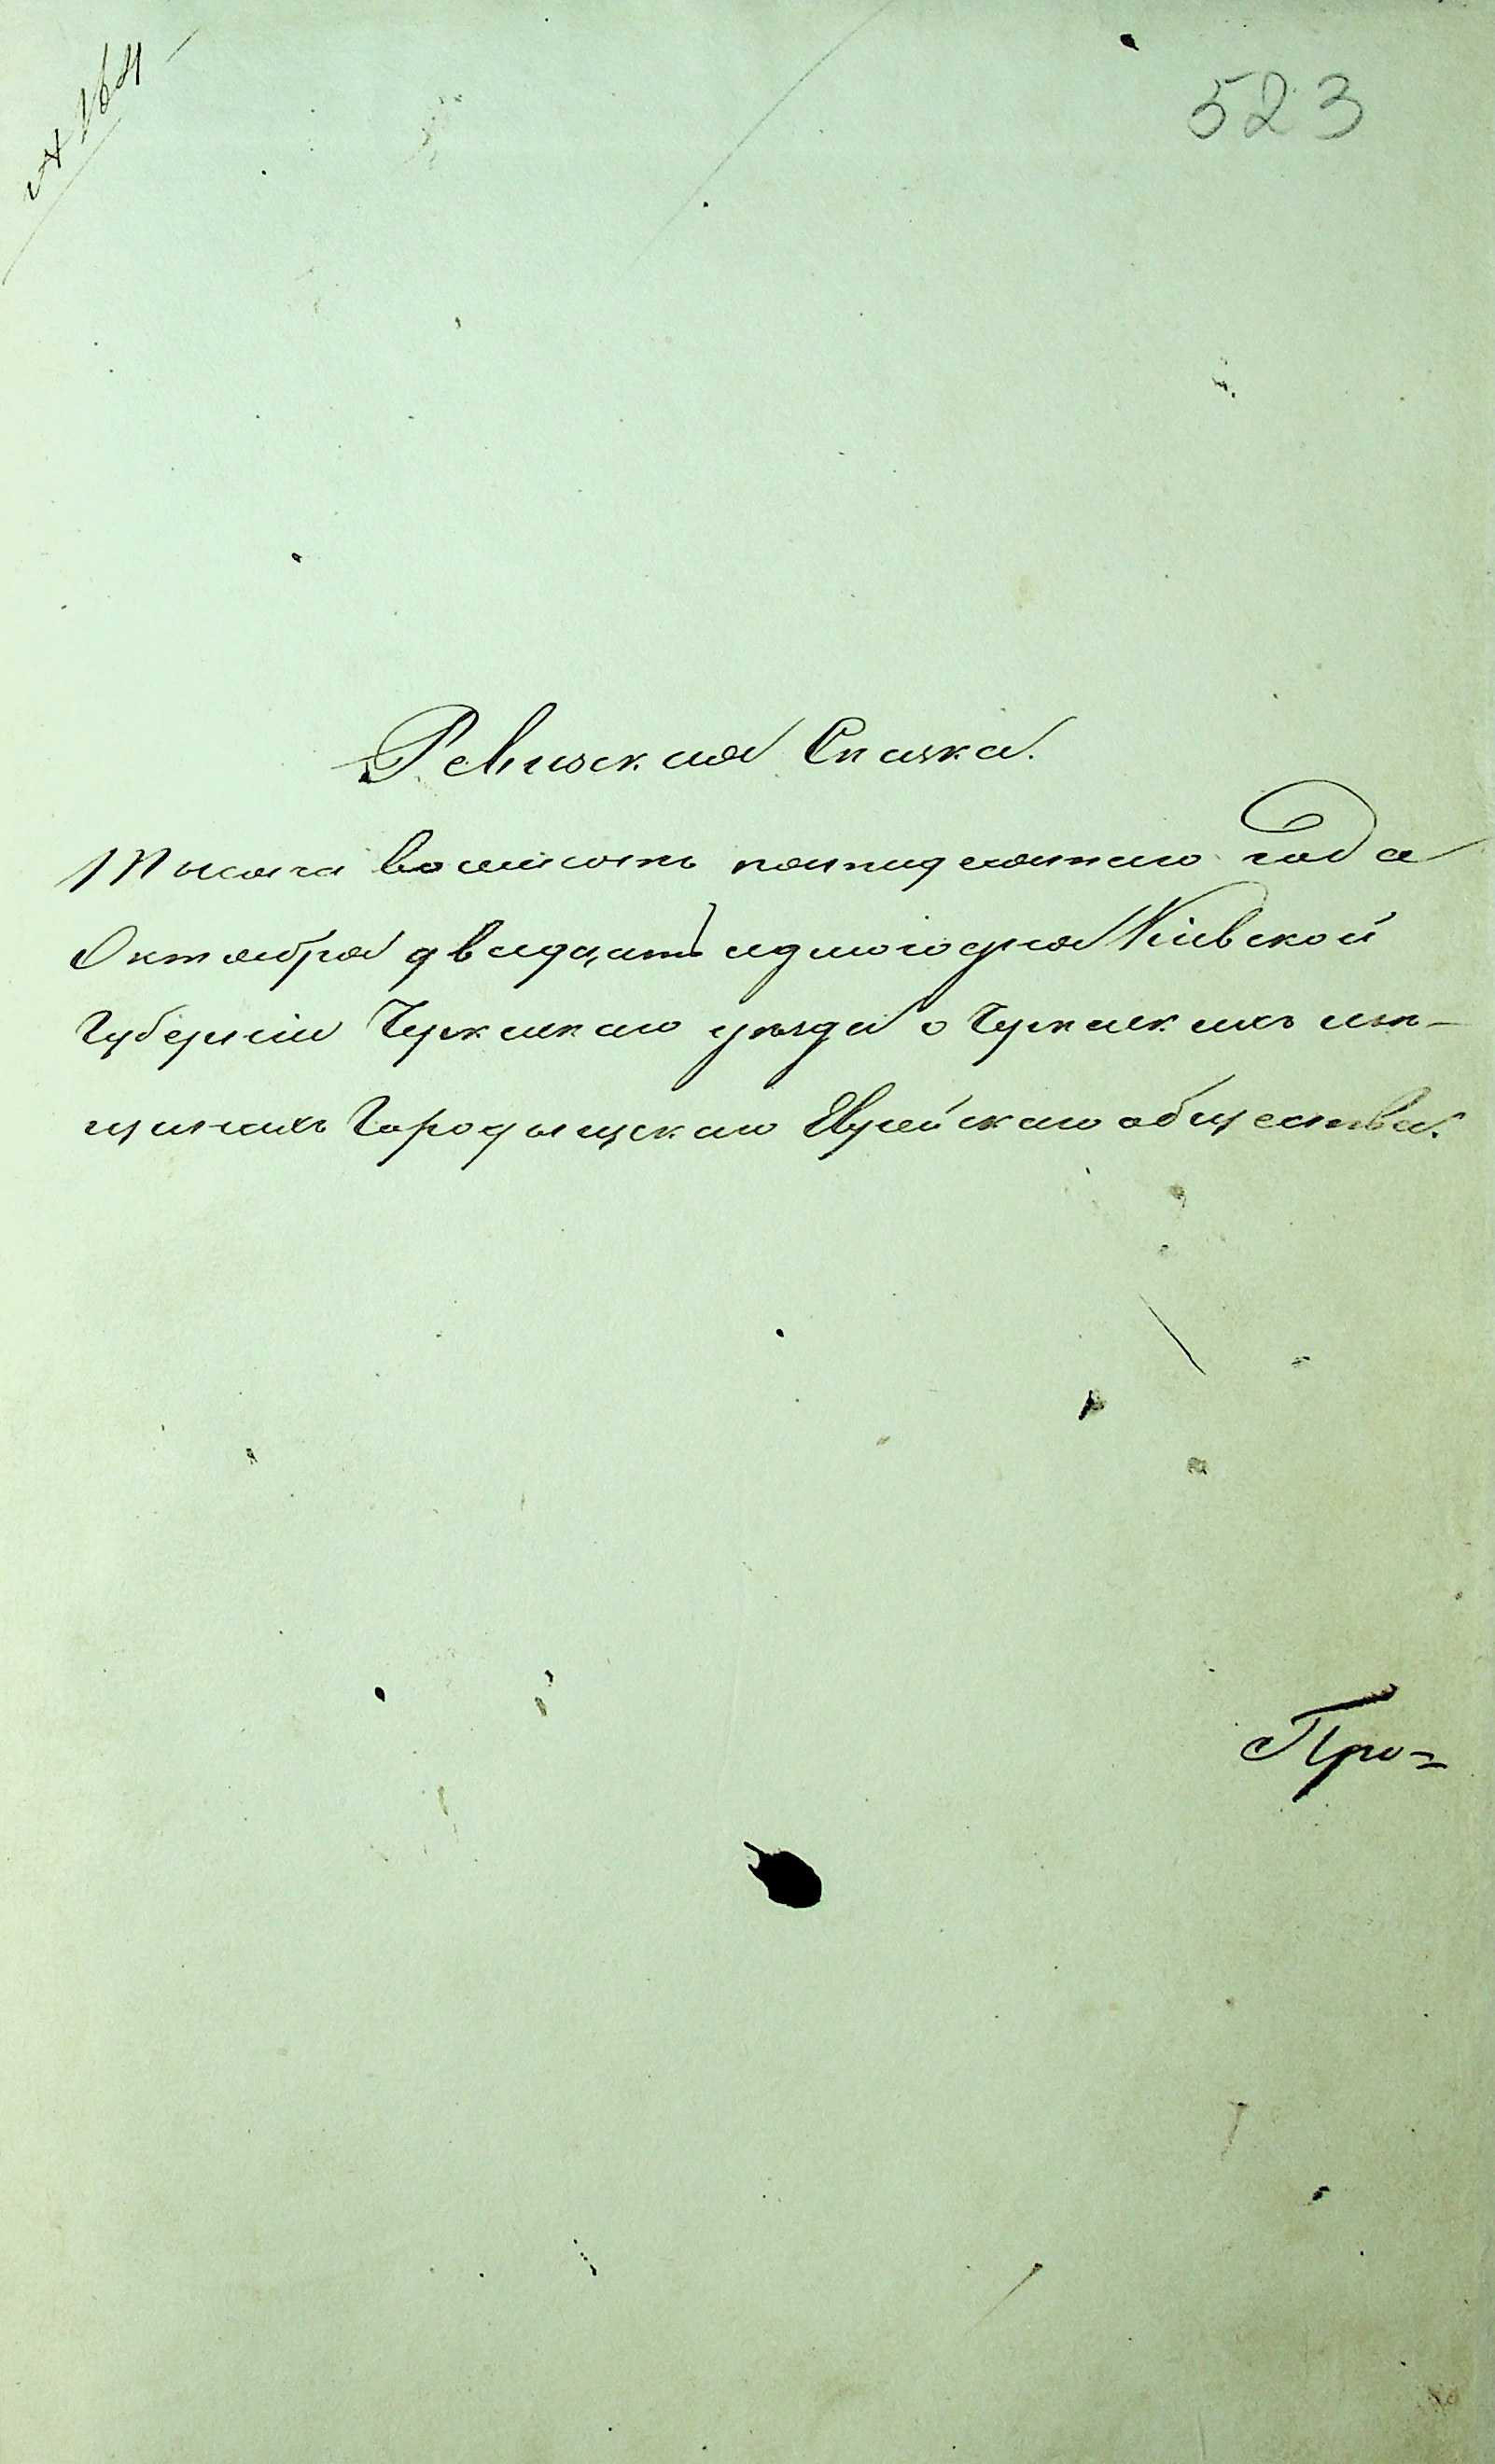 № 164
523
Ревизская Сказка.
Тысяча восемьсотъ пятидесятаго года
Октября двадцать седмого дня Кіевской
Губерніи Черкаскаго уезда о Черкаскихъ мѣ-
щанахъ Городыщскаго Еврейскаго общества.
Про=